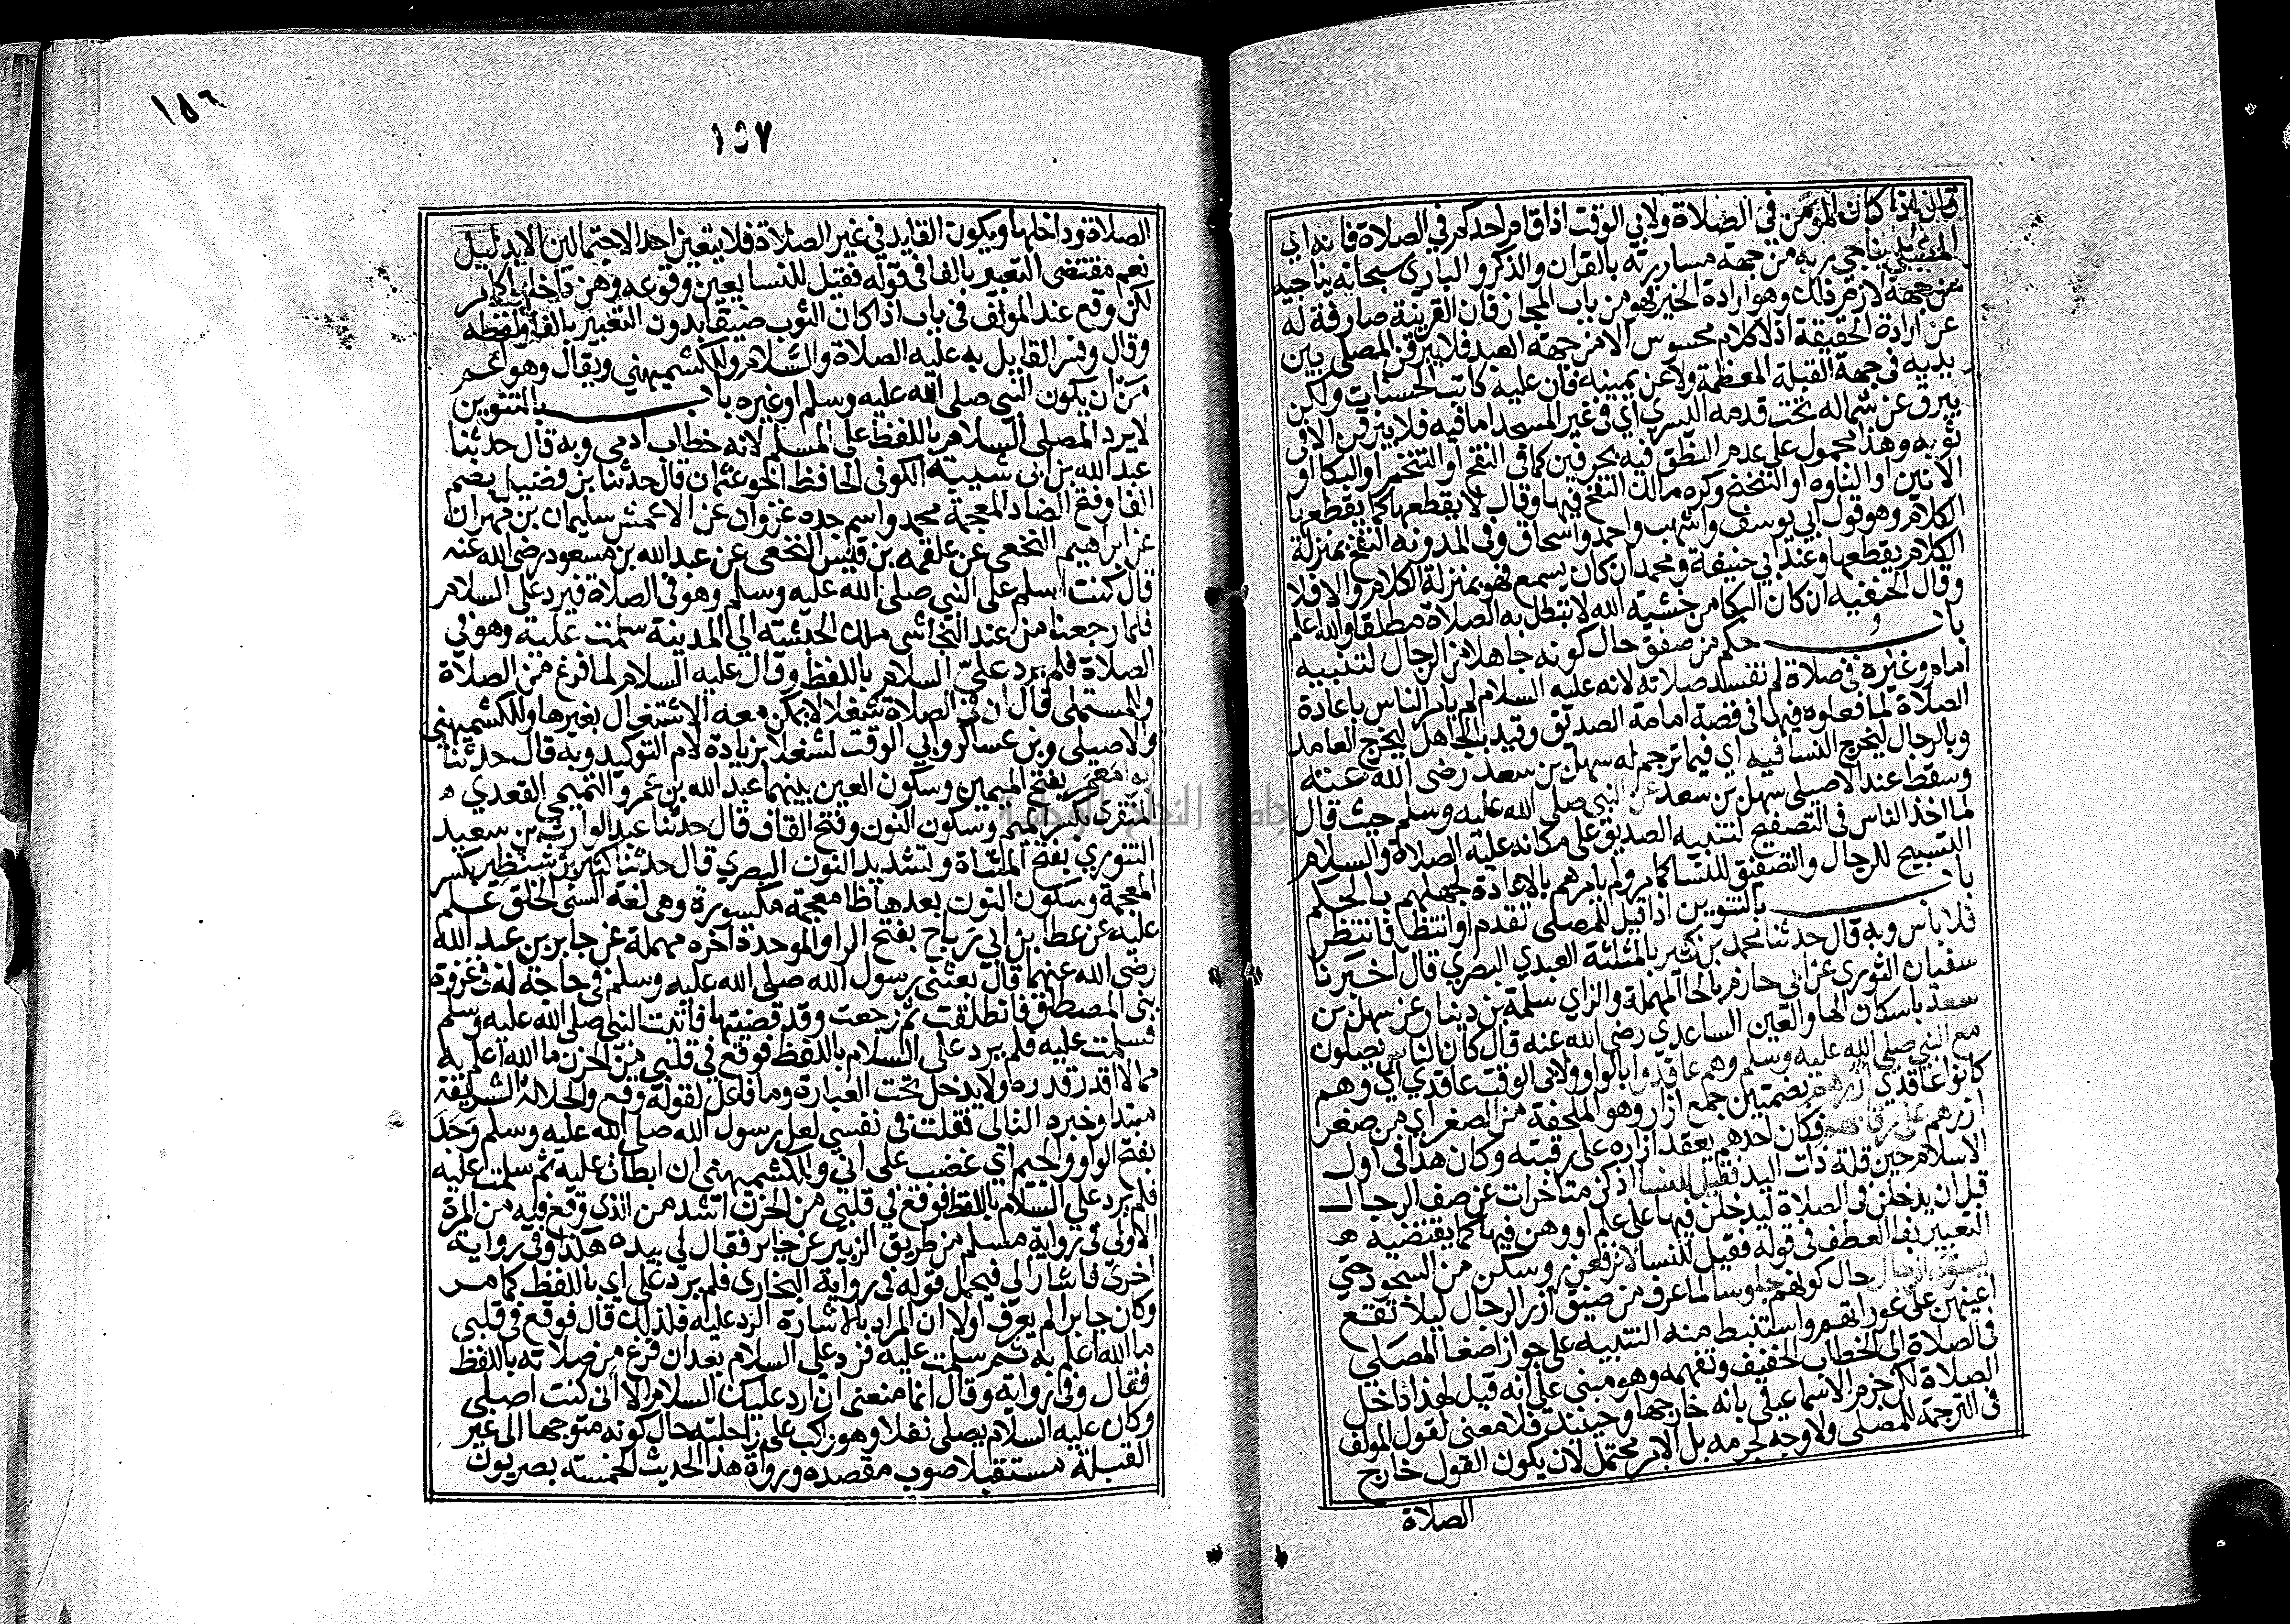 قال اذا كان المؤمن في الصلاة ولابي الوقت اذا قام احدكم في الصلاة فانه اي
المصلي يناجي ربه من جهة مساررته بالقران والذكر والباري سبحانه يناجيه
من جهة لازم ذلك وهو ارادة الخير فهو من باب المجاز فان القرينة صارفة له
عن ارادة الحقيقة اذ لا كلام محسوس الا من جهة العبد فلا يبزقن المصلي بين
يديه في جهة القبلة المعظمة ولا عن يمينه فان عليه كاتب الحسنات ولكن
يبزق عن شماله تحت قدمه اليسري اي في غير المسجد اما فيه فلا يبزقن الا في
ثوبه وهذا محمول على عدم النطق فيه بحرفين كما في النفخ او التنخم او البكا او
الانين او التاوه او التنحنح وكره مالك النفخ فيها وقال لا يقطعها كما يقطعها
الكلام وهو قول ابي يوسف واشهب واحمد واسحاق وفي المدونه النفخ بمنزلة
الكلام يقطعها وعند ابي حنيفة ومحمد ان كان يسمع فهو بمنزلة الكلام والا فلا
وقال الحنفيه ان كان البكا من خشية الله لا تبطل به الصلاة مطلقا والله اعلم
باب حكم من صفق حال كونه جاهلا من الرجال لتنبيه
امامه وغيره في صلاة لم تفسد صلاته لانه عليه السلام لم يامر الناس باعادة
الصلاة لما فعلوه فيها في قصة امامة الصديق وقيد بالجاهل ليخرج العامد
وبالرجال ليخرج النسا فيه اي فيما ترجم له سهل بن سعد رضى الله عنه
وسقط عند الاصيلي سهل بن سعد عن النبي صلى الله عليه وسلم حيث قال
لما اخذ الناس في التصفيح لتنبيه الصديق على مكانه عليه الصلاة والسلام
التسبيح للرجال والتصفيق للنسا كما مر ولم يامرهم بالاعادة لجهلهم بالحكم
باب بالتنوين اذا قيل للمصلى تقدم او انتظر فانتظر
فلا باس وبه قال حدثنا محمد بن كثير بالمثلثة العبدي البصري قال اخبرنا
سفيان الثوري عن ابي حازم بالحا المهملة والزاي سلمة بن دينار عن سهل بن
سعد باسكان الها والعين الساعدي رضي الله عنه قال كان الناس يصلون
مع النبي صلى الله عليه وسلم وهم عاقدوا بالواو ولابي الوقت عاقدي اي وهم
كانوا عاقدي ازرهم بضمتين جمع ازار وهو الملحفة من الصغر اي من صغر
ازرهم على رقابهم فكان احدهم يعقد ازاره على رقبته وكان هذا في اول
الاسلام حين قلة ذات اليد فقيل للنسا اذ كن متاخرات عن صف الرجال
قبل ان يدخلن في الصلاة ليدخلن فيها على علم او وهن فيها كما يقتضيه
التعبير بفا العطف في قوله فقيل للنسا لا ترفعن روسكن من السجود حتي
يستوي الرجال حال كونهم جلوسا لما عرف من ضيق ازر الرجال ليلا تقع
اعينهن على عوراتهم واستنبط منه التنبيه على جواز اصغا المصلي
في الصلاة الى الخطاب الخفيف وتفهمه وهو مبني على انه قيل لهذا داخل
الصلاة لكن جزم الاسماعيلي بانه خارجها وحينئذ فلا معنى لقول المولف
في الترجمة للمصلي ولا وجه لجزمه بل الامر محتمل لان يكون القول خارج
الصلاة
١٥٦
١٥٧
الصلاة وداخلها ويكون القايد في غير الصلاة فلا يتعين احد الاحتمالين الا بدليل
نعم مقتضى التعبير بالفا في قوله فقيل للنسا يعين وقوعه وهن داخل
لكن وقع عند المولف في باب اذا كان الثوب ضيقا بدون التعبير بالفا ولفظه
وقال وفسر القايل به عليه الصلاة والسلام وللكشميهني ويقال وهو اعم
من ان يكون النبي صلى الله عليه وسلم او غيره باب بالتنوين
لا يرد المصلى السلام باللفظ على المسلم لانه خطاب ادمى وبه قال حدثنا
عبد الله بن بي شيبة الكوفي الحافظ اخو عثمان قال حدثنا بن فضيل بضم
الفا وفتح الضاد المعجمة محمد واسم جده غزوان عن الاعمش سليمان بن مهران
عن ابراهيم النخعي عن علقمه بن قيس النخعى عن عبد الله بن مسعود رضى الله عنه
قال كنت اسلم على النبي صلى الله عليه وسلم وهو في الصلاة فيرد على السلام
فلما رجعنا من عند النجاشى ملك الحبشة الى المدينة سلمت عليه وهو في
الصلاة فلم يرد علي السلام باللفظ وقال عليه السلام لما فرغ من الصلاة
والمستملى قال ان في الصلاة شغلا لا يمكن معه الاشتغال بغيرها وللكشميهني
والاصيلى وبن عساكر وابي الوقت لشغلا بزيادة لام التوكيد وبه قال حدثنا
ابو معمر بفتح الميمين وسكون العين بينهما عبد الله بن عمرو التميمي المقعدي
المنقري بكسر الميم وسكون النون وفتح القاف قال حدثنا عبد الوارث بن سعيد
التنوري بفتح المثناة وتشديد النون البصري قال حدثنا كثير بن شنظير بكسر
المعجمة وسكون النون بعدها ظا معجمة مكسورة وهى لغة السئ الخلق علم
عليه عن عطا بن ابي رباح بفتح الرا والموحدة آخره مهملة عن جابر بن عبد الله
رضى الله عنهما قال بعثنى رسول الله صلى الله عليه وسلم في حاجة له في غزوة
بنى المصطلق فانطلقت ثم رجعت وقد قضيتها فاتيت النبي صلى الله عليه وسلم
فسلمت عليه فلم يرد على السلام باللفظ فوقع في قلبي من الحزن ما الله اعلم به
مما لا اقدر قدره ولا يدخل تحت العبارة وما فاعل لقوله وقع والجلالة الشريفة
مبتدا وخبره التالى فقلت في نفسي لعل رسول الله صلى الله عليه وسلم وجد
بفتح الواو والجيم اي غضب على اني وللكشميهني ان ابطات عليه ثم سلمت عليه
فلم يرد علي السلام باللفظ فوقع في قلبي من الحزن اشد من الذي وقع فيه من المرة
الاولى في رواية مسلم من طريق الزبير عن جابر فقال لي بيده هكذا وفي رواية
اخرى فاشار الى فيحمل قوله في رواية البخارى فلم يرد على اي باللفظ كما مر
وكان جابر الم يعرف اولا ان المراد بالاشارة الرد عليه فلذلك قال فوقع في قلبي
ما الله اعلم به ثم سلمت عليه فرد على السلام بعد ان فرغ من صلاته باللفظ
فقال وفي رواية وقال انما منعني ان ارد عليك السلام الا اني كنت اصلي
وكان عليه السلام يصلى نفلا وهو راكب على راحلته حال كونه متوجها الى غير
القبلة مستقبلا صوب مقصده ورواة هذا الحديث الخمسة بصريون